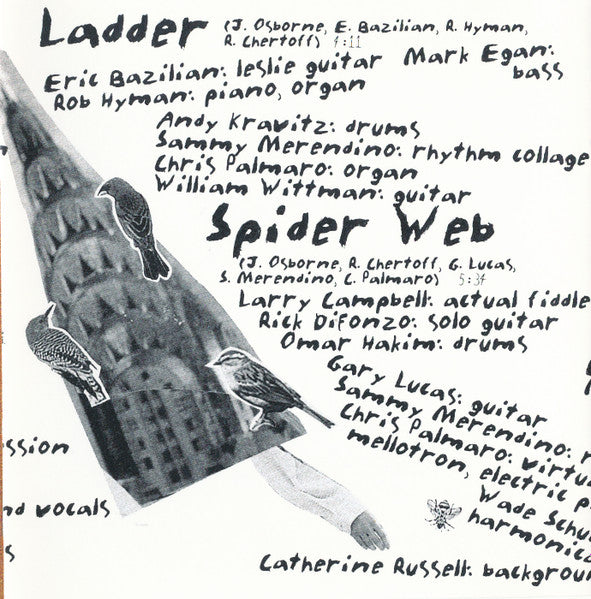 Ladder (J. Osborne, E. Bazilian, R. Hyman,
R. Chertoff) 4:11
Eric Bazilian: leslie guitar Mark Egan:
bass
Rob Hyman: piano, organ
Andy Kravitz: drums
Sammy Merendino: rhythm collage
Chris Palmaro: organ
William Wittman: guitar
Spider Web
(J. Osborne, R. Chertoff, G. Lucas,
S. Merendino, C. Palmaro) 5:34
Larry Campbell: actual fiddle
Rick DiFonzo: solo guitar
Omar Hakim: drums
Gary Lucas: guitar
Sammy Merendino:
Chris Palmaro:
mellotron, electric
Wade
harmonica
ssion
nd vocals
s
Catherine Russell: